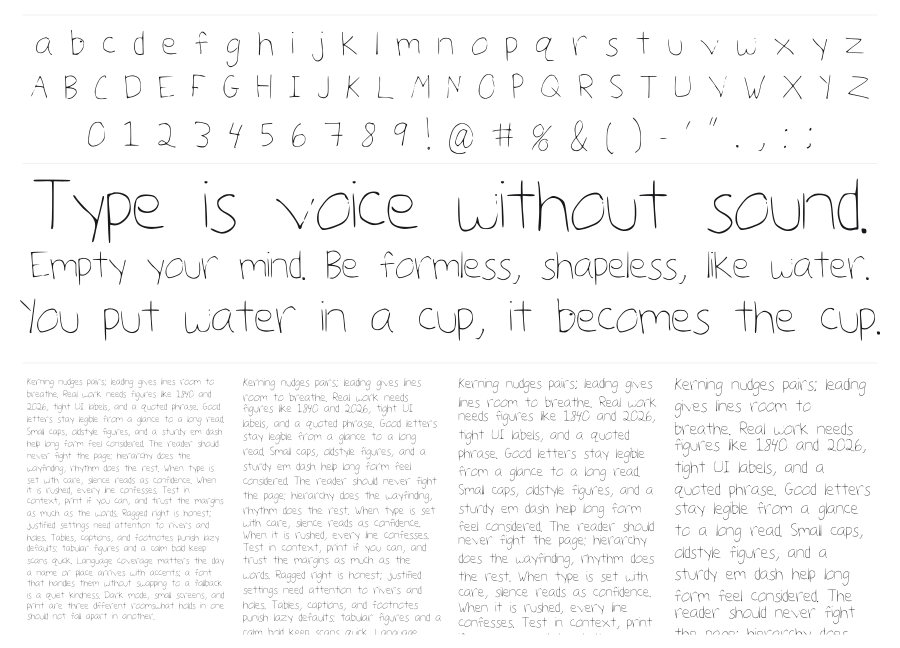 a b c d e f g h i j k l m n o p q r s t u v w x y z
A B C D E F G H I J K L M N O P Q R S T U V W X Y Z
0 1 2 3 4 5 6 7 8 9 ! @ # % & ( ) - ' " . , : ;
Type is voice without sound.
Empty your mind. Be formless, shapeless, like water.
You put water in a cup, it becomes the cup.
Kerning nudges pairs; leading gives lines room to
breathe. Real work needs figures like 1840 and
2026, tight UI labels, and a quoted phrase. Good
letters stay legible from a glance to a long read.
Small caps, oldstyle figures, and a sturdy em dash
help long form feel considered. The reader should
never fight the page; hierarchy does the
wayfinding, rhythm does the rest. When type is
set with care, silence reads as confidence. When
it is rushed, every line confesses. Test in
context, print if you can, and trust the margins
as much as the words. Ragged right is honest;
justified settings need attention to rivers and
holes. Tables, captions, and footnotes punish lazy
defaults; tabular figures and a calm bold keep
scans quick. Language coverage matters the day
a name or place arrives with accents; a font
that handles them without swapping to a fallback
is a quiet kindness. Dark mode, small screens, and
print are three different rooms…what holds in one
should not fall apart in another.
Kerning nudges pairs; leading gives lines
room to breathe. Real work needs
figures like 1840 and 2026, tight UI
labels, and a quoted phrase. Good letters
stay legible from a glance to a long
read. Small caps, oldstyle figures, and a
sturdy em dash help long form feel
considered. The reader should never fight
the page; hierarchy does the wayfinding,
rhythm does the rest. When type is set
with care, silence reads as confidence.
When it is rushed, every line confesses.
Test in context, print if you can, and
trust the margins as much as the
words. Ragged right is honest; justified
settings need attention to rivers and
holes. Tables, captions, and footnotes
punish lazy defaults; tabular figures and a
calm bold keep scans quick. Language
Kerning nudges pairs; leading gives
lines room to breathe. Real work
needs figures like 1840 and 2026,
tight UI labels, and a quoted
phrase. Good letters stay legible
from a glance to a long read.
Small caps, oldstyle figures, and a
sturdy em dash help long form
feel considered. The reader should
never fight the page; hierarchy
does the wayfinding, rhythm does
the rest. When type is set with
care, silence reads as confidence.
When it is rushed, every line
confesses. Test in context, print
Kerning nudges pairs; leading
gives lines room to
breathe. Real work needs
figures like 1840 and 2026,
tight UI labels, and a
quoted phrase. Good letters
stay legible from a glance
to a long read. Small caps,
oldstyle figures, and a
sturdy em dash help long
form feel considered. The
reader should never fight
the page; hierarchy does